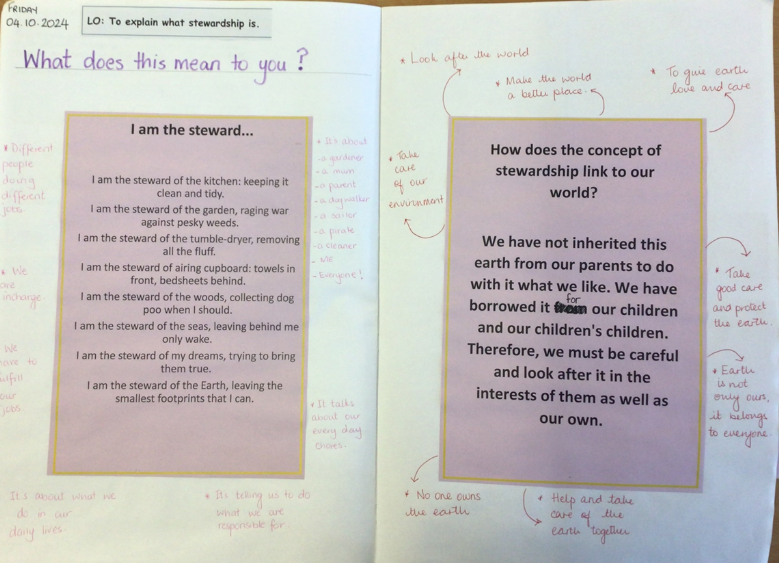 FRIDAY
04.10.2024
LO: To explain what stewardship is.
What does this mean to you?
* Different
people
doing
different
jobs.
* We
are
incharge.
We
have to
fulfill
our
jobs.
I am the steward...
I am the steward of the kitchen: keeping it
clean and tidy.
I am the steward of the garden, raging war
against pesky weeds.
I am the steward of the tumble-dryer, removing
all the fluff.
I am the steward of airing cupboard: towels in
front, bedsheets behind.
I am the steward of the woods, collecting dog
poo when I should.
I am the steward of the seas, leaving behind me
only wake.
I am the steward of my dreams, trying to bring
them true.
I am the steward of the Earth, leaving the
smallest footprints that I can.
* Its about
- a gardiner
- a mum
- a parent
- a dogwalker
- a sailor
- a pirate
- a cleaner
- Me
- Everyone!
* It talks
about our
every day
chores.
It's about what we
do in our
daily lives.
* Its telling us to do
what we are
responsible for.
* Look after the world
* Make the world
a better place.
* To give earth
love and care
* Take
care
of our
environment
How does the concept of
stewardship link to our
world?
We have not inherited this
earth from our parents to do
with it what we like. We have
borrowed it from for our children
and our children's children.
Therefore, we must be careful
and look after it in the
interests of them as well as
our own.
* Take
good care
and protect
the earth.
* Earth
is not
only ours,
it belongs
to everyone.
* No one owns
the earth
* Help and take
care of the
earth together